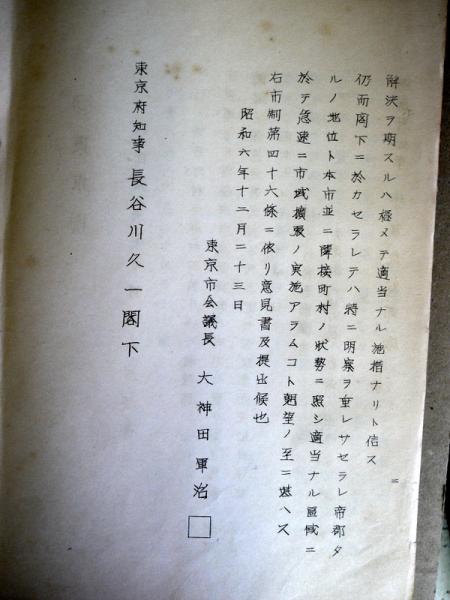 解決ヲ期スルハ極メテ適当ナル施措ナリト信ス
仍而閣下ニ於カセラレテハ特ニ明察ヲ垂レサセラレ帝都タ
ルノ地位ト本市並ニ隣接町村ノ状勢ニ照シ適当ナル区域ニ
於テ急速ニ市域擴張ノ実施アラムコト翹望ノ至ニ堪ヘス
右市制第四十六條ニ依リ意見書及提出候也
昭和六年十二月二十三日
東京市会議長 大神田軍治
東京府知事 長谷川久一閣下
ニ